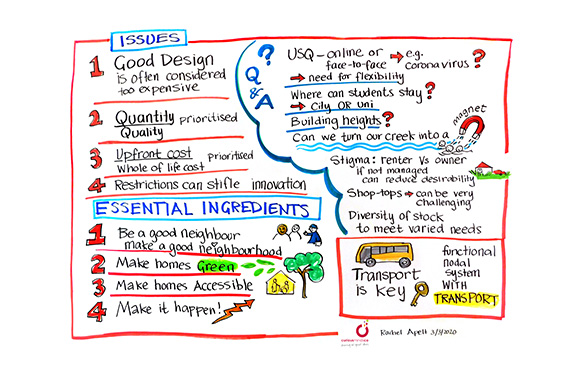 ISSUES
1 Good Design
is often considered
too expensive
2 Quantity prioritised
Quality
3 Upfront cost prioritised
Whole of life cost
4 Restrictions can stifle innovation
ESSENTIAL INGREDIENTS
1 Be a good neighbour
make a good neighbourhood
2 Make homes Green
3 Make homes Accessible
4 Make it happen!
Q & A ?
USQ - online or face-to-face → e.g. coronavirus?
→ need for flexibility
Where can students stay?
→ City OR Uni
Building heights?
Can we turn our creek into a magnet
Stigma: renter Vs owner
if not managed
can reduce desirability
Shop-tops → can be very
challenging
Diversity of stock
to meet varied needs
Transport
is key
functional
nodal
system
WITH
TRANSPORT
Rachel Apelt 3/3/2020